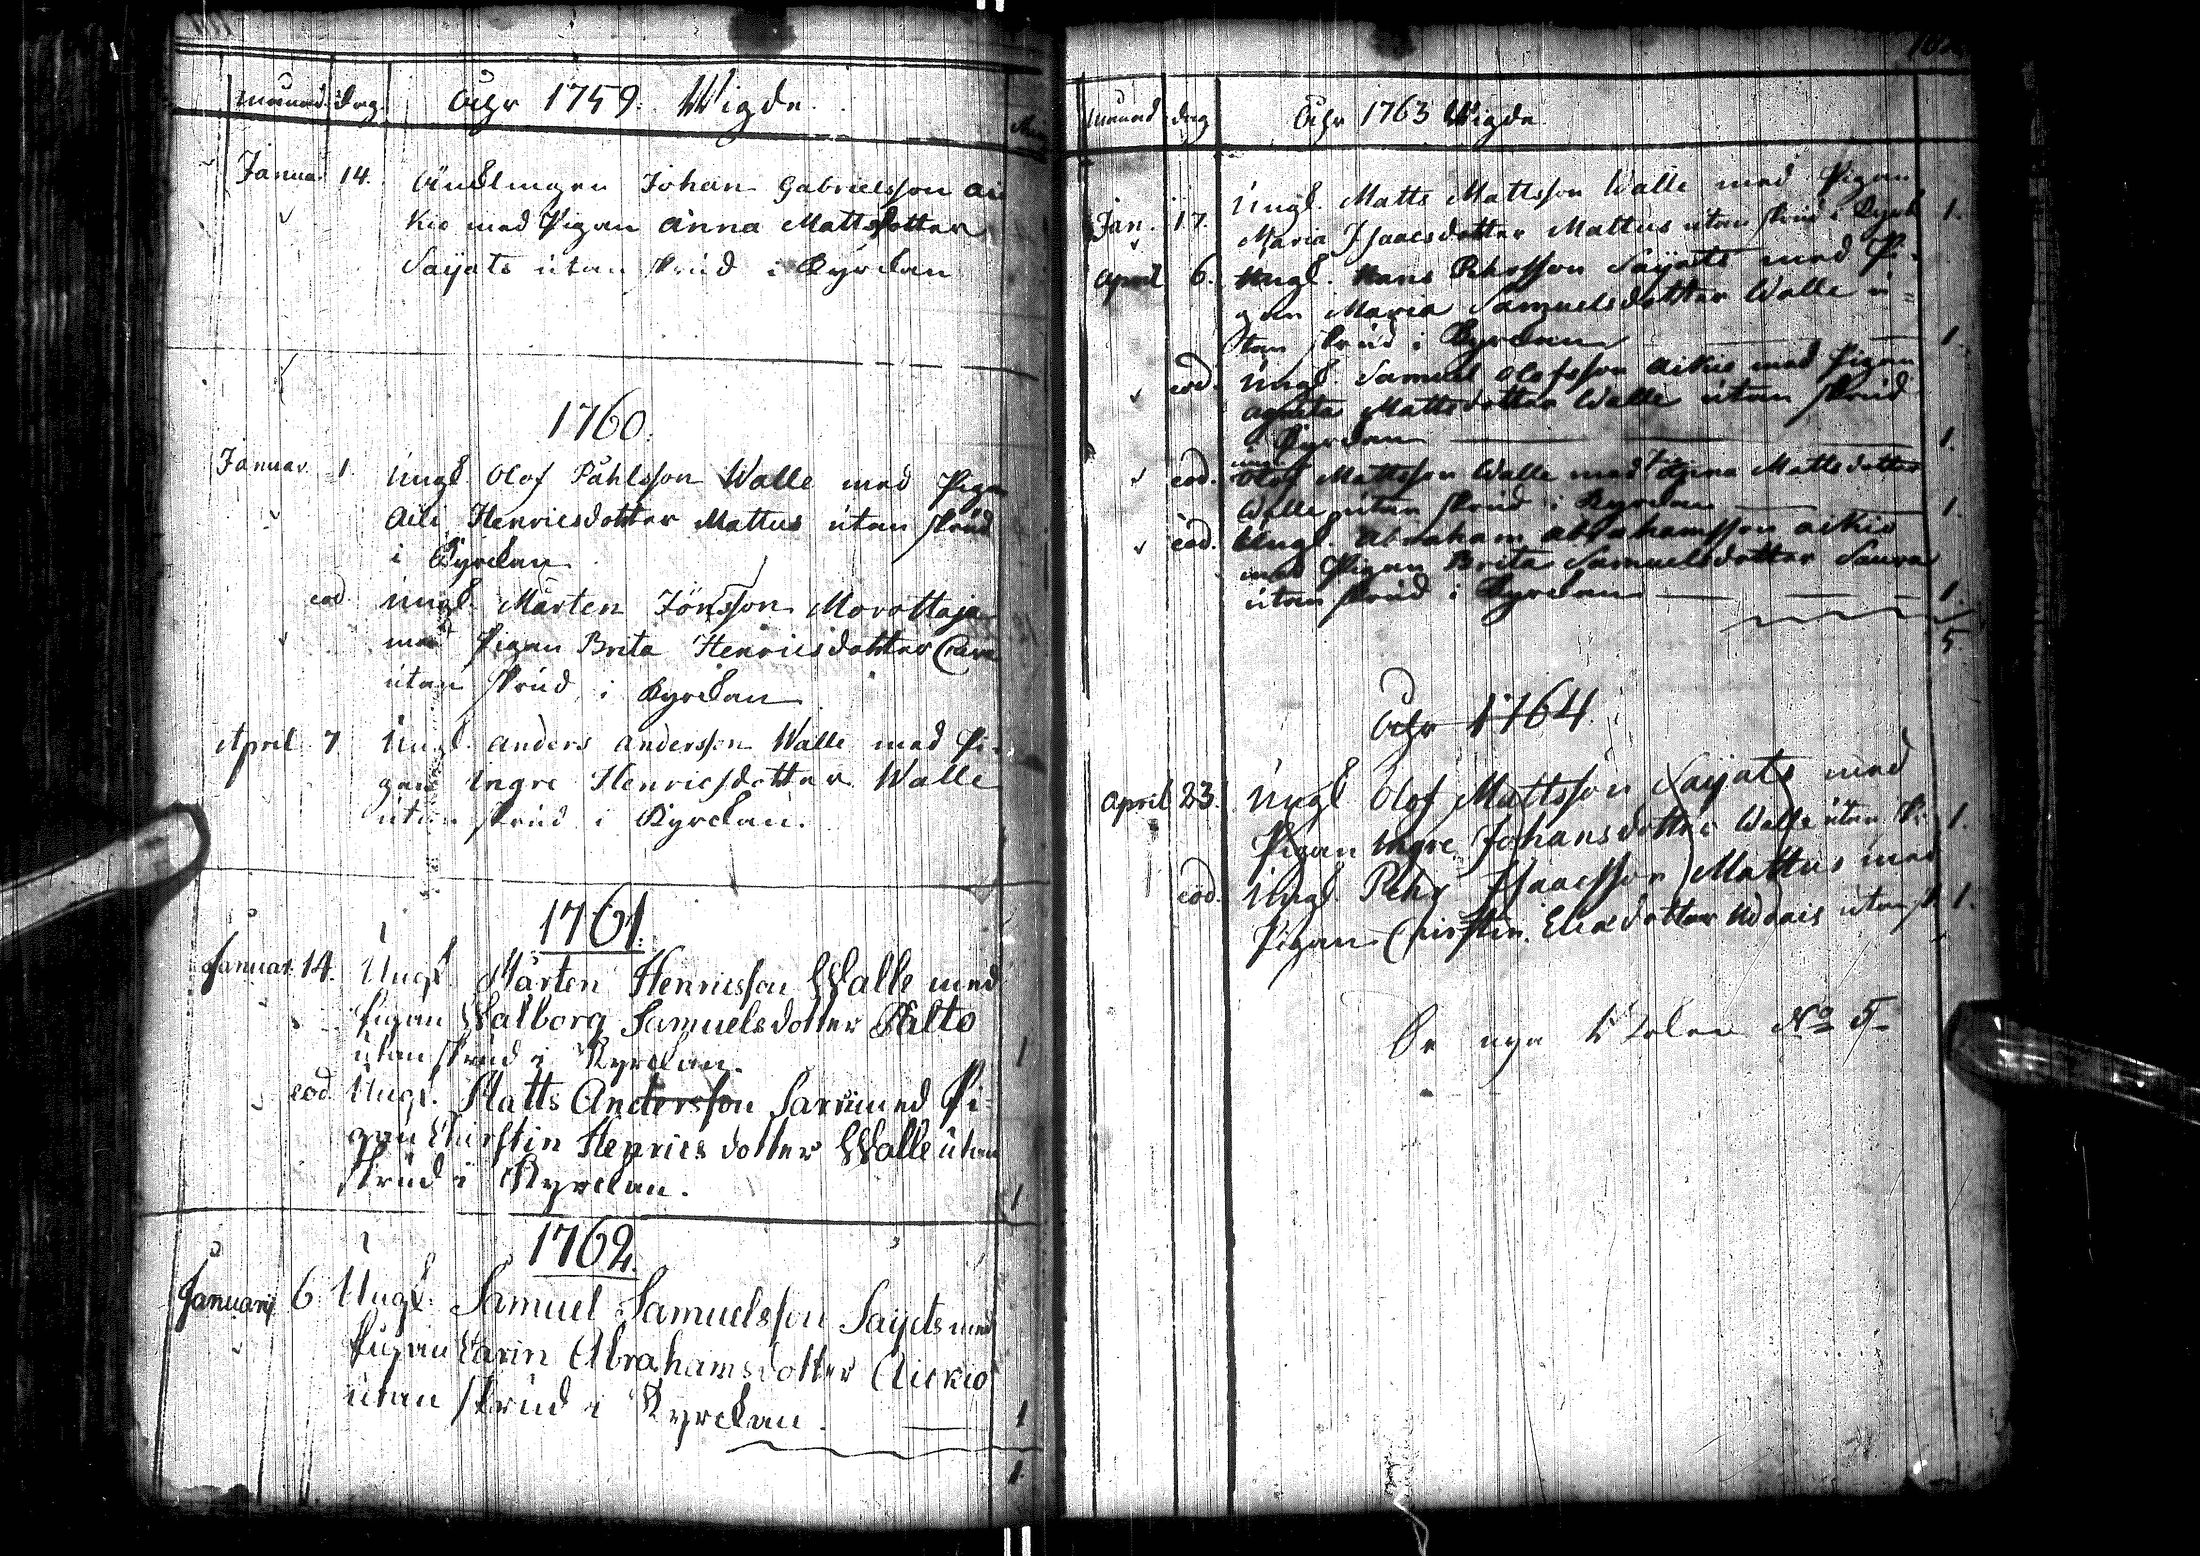 månad dag Åhr 1759. Wigde.
Januar 14. Änklingen Johan Gabrielsson Ai
kio med Pigan Anna Mattsdotter
Sayets utan skrud i Kyrckan
1760.
Januar. 1. Ungk. Olof Påhlsson Walle med Pigan
Aili Henricsdotter Mattus utan skrud
i Kyrckan
eod. Ungk. Mårten Jönsson Morottaja
med Pigan Brita Henricsdotter
utan skrud i Kyrckan
April 7 Ungk. Anders Andersson Walle med Pi-
gan Ingre Henricsdotter Walle
utan skrud i Kyrckan.
1761.
Januar. 14. Ungk. Mårten Henricsson Walle med
Pigan Walborg Samuelsdotter Palto
utan skrud i Kyrckan. 1
eod. Ungk. Matts Andersson Sarri med Pi-
gan Chirstin Henricsdotter Walle utan
skrud i Kyrckan. 1
1762.
Januarij 6. Ungk. Samuel Samuelsson Sayets med
Pigan Carin Abrahamsdotter Aickio
utan skrud i Kyrckan. 1
1.
månad dag Åhr 1763 Wigde
Jan. 17. Ungk. Matts Mattsson Walle med Pigan
Maria Isaacsdotter Mattus utan skrud i Kyrk 1.
April 6. Ungk. Hans Pehrsson Sayets med Pi-
gan Maria Samuelsdotter Walle u=
tan skrud i Kyrckan 1.
eod. Ungk. Samuel Olofsson Aikio med Pigan
Agneta Mattsdotter Walle utan skrud
i Kyrckan 1.
eod. Olof Mattsson Walle med Anna Mattsdotter
Walle utan skrud i Kyrckan 1.
eod. Ungk. Abraham Abrahamsson Aikio
med Pigan Brita Samuelsdotter Saura
utan skrud i Kyrckan 1.
5.
Åhr 1764.
April 23. Ungk. Olof Mattsson Sayets med
Pigan Ingre Johansdotter Walle utan Sk. 1.
eod. Ungk. Pehr Isaacsson Mattus med
Pigan Chirstin Eliædotter utan sk. 1.
Se nya No 5